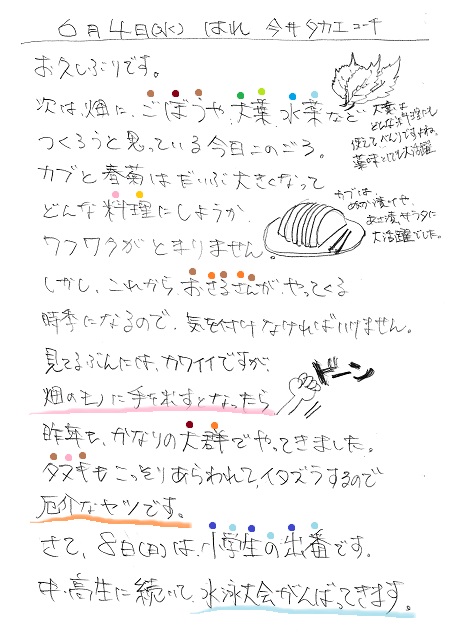 6月4日(水) はれ 今井タカエコーチ
お久しぶりです。
次は、畑に、ごぼうや、大葉、水菜など
つくろうと思っている今日このごろ。
大葉は
どんな料理にも
使えてべんりですよね。
薬味としても大活躍
カブと春菊はだいぶ大きくなって
どんな料理にしようか、
ワクワクがとまりません。
カブは、
ぬか漬けや、
あさ漬、サラダに
大活躍でした。
しかし、これからおさるさんが、やってくる
時季になるので、気を付けなければいけません。
見てるぶんには、カワイイですが、
畑のモノに手を出すとなったら
ドーン
昨年も、かなりの大群でやってきました。
タヌキもこっそりあらわれて、イタズラするので
厄介なヤツです。
さて、8日(日)は、小学生の出番です。
中・高生に続いて、水泳大会がんばってきます。